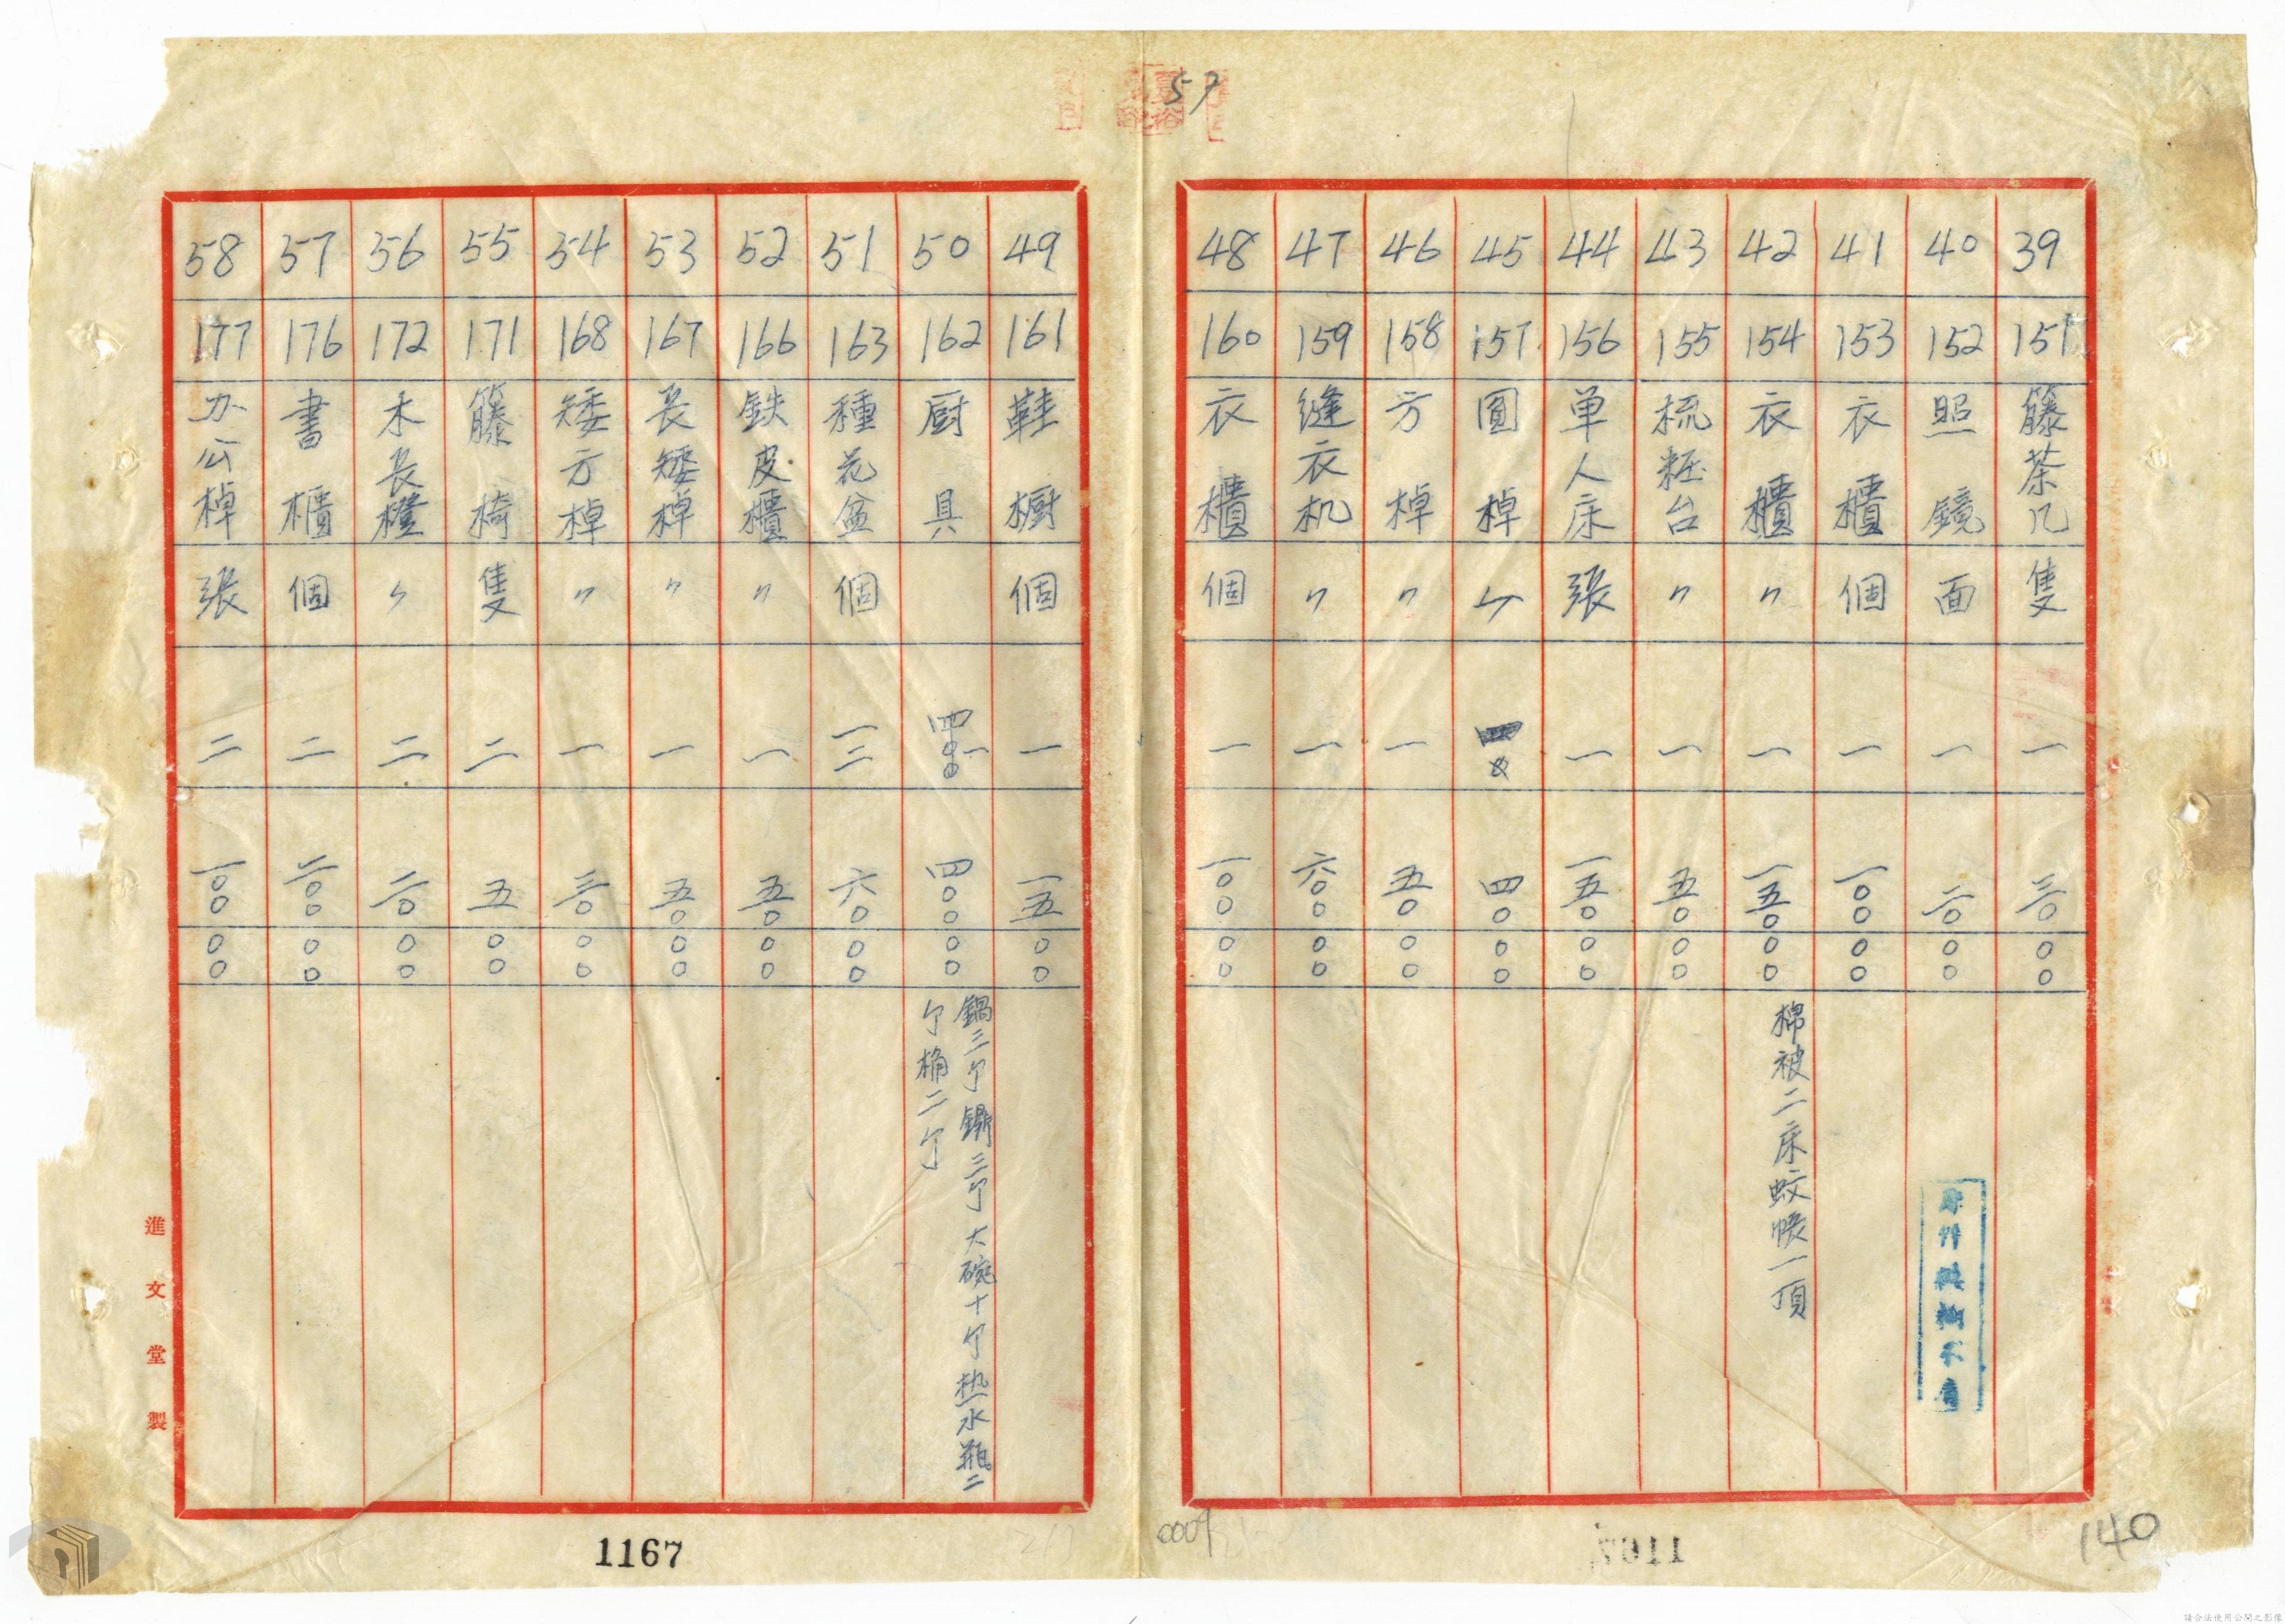 57
39 151 籐茶几 隻 一 三〇 〇〇
40 152 照鏡 面 一 二〇 〇〇
41 153 衣櫃 個 一 一〇〇 〇〇
42 154 衣櫃 〃 一 一五〇 〇〇 棉被二床蚊帳一頂
43 155 梳粧台 〃 一 五〇 〇〇
44 156 单人床 張 一 一五〇 〇〇
45 157 圓棹 〃 四〇 〇〇
46 158 方棹 〃 一 五〇 〇〇
47 159 縫衣机 〃 一 六〇〇 〇〇
48 160 衣櫃 個 一 一〇〇 〇〇
49 161 鞋橱 個 一 一五 〇〇
50 162 厨具 一 四〇〇 〇〇 鍋三个 三个 大碗十个 热水瓶二
个 桶二个
51 163 種花盆 個 一二 六〇 〇〇
52 166 鉄皮櫃 〃 一 五〇 〇〇
53 167 長矮棹 〃 一 五〇 〇〇
54 168 矮方棹 〃 一 三〇 〇〇
55 171 籐椅 隻 二 五 〇〇
56 172 木長櫈 〃 二 二〇 〇〇
57 176 書櫃 個 二 二〇〇 〇〇
58 177 办公棹 張 二 一〇〇 〇〇
進文堂製
1167
0009
140
請合法使用公開之影像